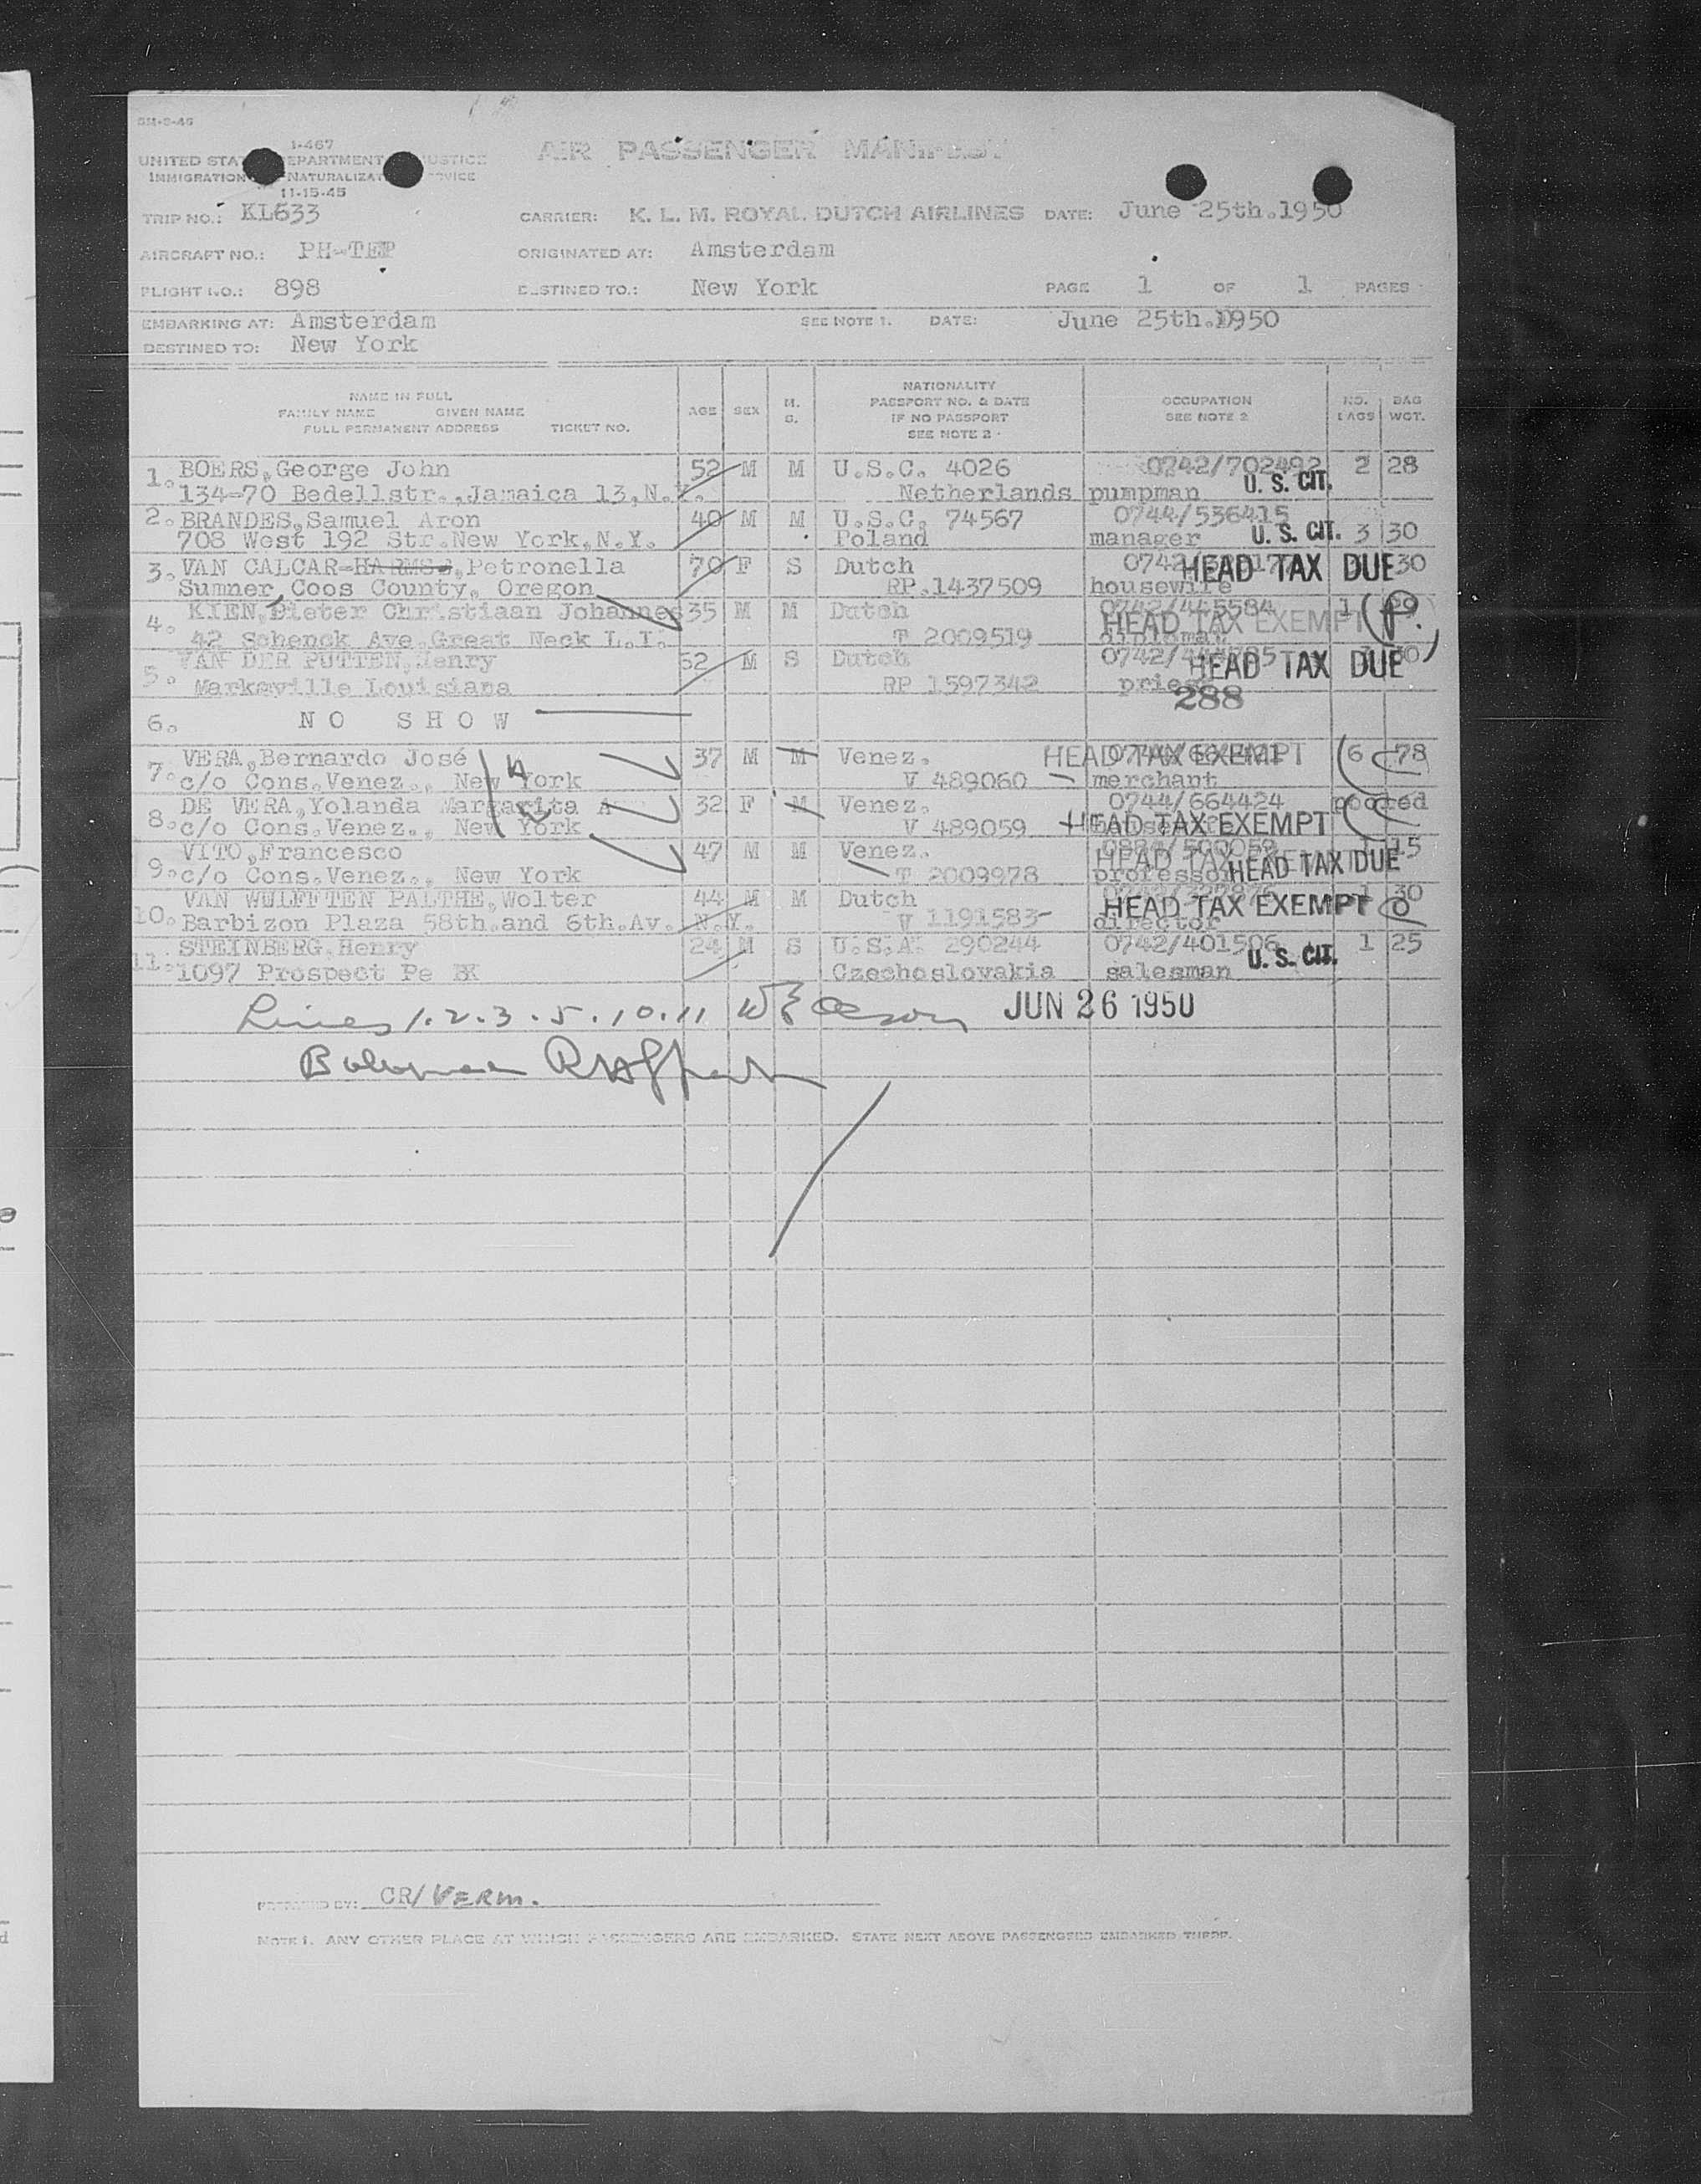 I-467
UNITED STA EPARTMENT USTICE
IMMIGRATION NATURALIZAT RVICE
11-15-45
AIR PASSENGER MANIFEST
TRIP NO.: KL633 CARRIER: K. L. M. ROYAL DUTCH AIRLINES DATE: June 25th.1950
AIRCRAFT NO.: PH-TEP ORIGINATED AT: Amsterdam
FLIGHT NO.: 898 DESTINED TO.: New York PAGE 1 OF 1 PAGES
EMBARKING AT: Amsterdam SEE NOTE 1. DATE: June 25th.1950
DESTINED TO: New York
NAME IN FULL
FAMILY NAME GIVEN NAME
FULL PERMANENT ADDRESS TICKET NO.
AGE SEX M. S.
NATIONALITY
PASSPORT NO. & DATE
IF NO PASSPORT
SEE NOTE 2
OCCUPATION
SEE NOTE 2
NO. BAGS
BAG WGT.
1. BOERS,George John 52 M M U.S.C. 4026 0742/702492 2 28
134-70 Bedellstr.,Jamaica 13,N.Y. Netherlands pumpman U. S. CIT.
2. BRANDES,Samuel Aron 40 M M U.S.C. 74567 0744/536415
708 West 192 Str.New York,N.Y. Poland manager U. S. CIT. 3 30
3. VAN CALCAR-HARMS,Petronella 70 F S Dutch HEAD TAX DUE 30
Sumner, Coos County, Oregon RP.1437509 housewife
4. KIEN,Pieter Christiaan Johannes 35 M M Dutch 0742/445584 1 29
42 Schenck Ave.Great Neck L.I. T 2009519 HEAD TAX EXEMPT diplomat
5. VAN DER PUTTEN,Henry 52 M S Dutch HEAD TAX DUE 30
Marksville Louisiana RP 1597342 priest
288
6. NO SHOW
7. VERA,Bernardo José 37 M M Venez. HEAD TAX EXEMPT 6 78
c/o Cons.Venez., New York V 489060 merchant
8. DE VERA,Yolanda Margarita A 32 F M Venez. 0744/664424 pooled
c/o Cons.Venez., New York V 489059 HEAD TAX EXEMPT
9. VITO,Francesco 47 M M Venez. 15
c/o Cons.Venez., New York T 2009978 professor HEAD TAX DUE
10. VAN WULFFTEN PALTHE,Wolter 44 M M Dutch 1 30
Barbizon Plaza 58th.and 6th.Av. N.Y. V 1191583 HEAD TAX EXEMPT director
11. STEINBERG,Henry 24 M S U.S.A. 290244 0742/401506 1 25
1097 Prospect Pe BK Czechoslovakia salesman U. S. CIT.
Lines 1.2.3.5.10.11 JUN 26 1950
PREPARED BY: CR/VERM.
NOTE 1. ANY OTHER PLACE AT WHICH PASSENGERS ARE EMBARKED. STATE NEXT ABOVE PASSENGERS EMBARKED THERE.